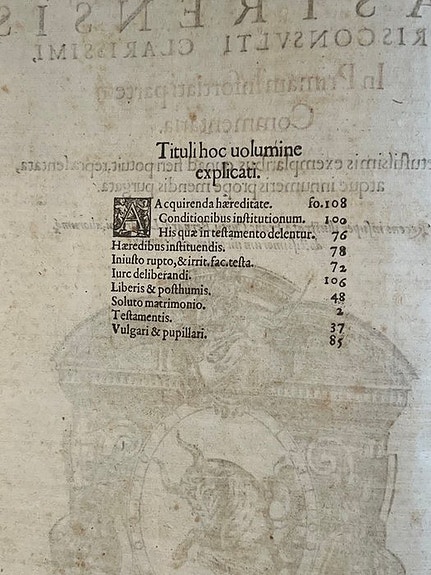 Tituli hoc uolumine
explicati.
A Acquirenda hæreditate. fo.108
Conditionibus institutionum. 100
His quæ in testamento delentur. 76
Hæredibus instituendis. 78
Iniusto rupto, & irrit. fac. testa. 72
Iure deliberandi. 106
Liberis & posthumis. 48
Soluto matrimonio. 2
Testamentis. 37
Vulgari & pupillari. 85